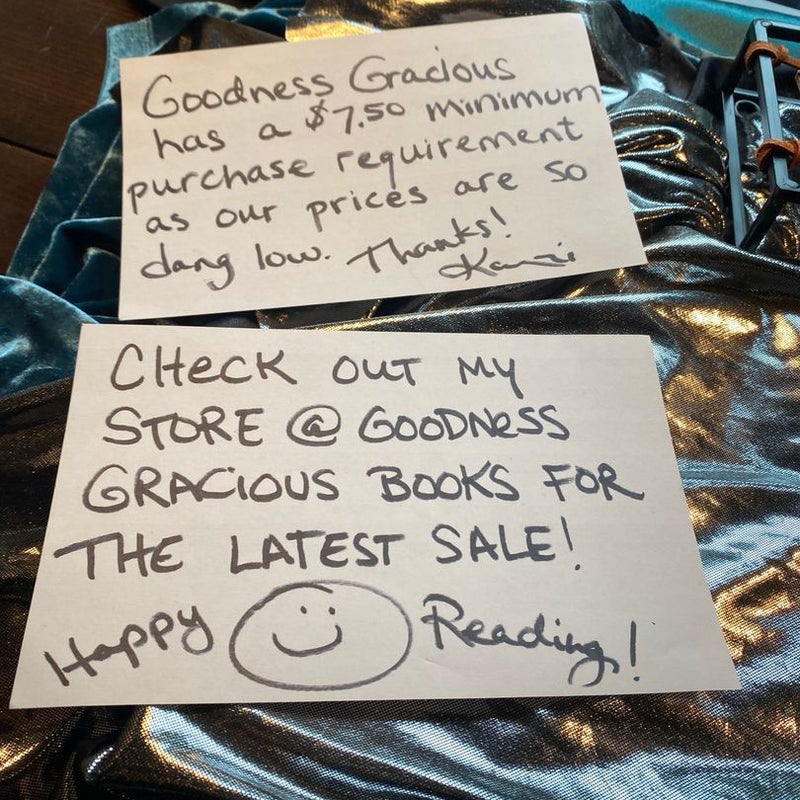 Goodness Gracious
has a $7.50 minimum
purchase requirement
as our prices are so
dang low. Thanks!
CHeCK OUT MY
STORE @ GOODNeSS
GRACiOUS BOOKS FOR
THE LATEST SALE!
Happy Reading!